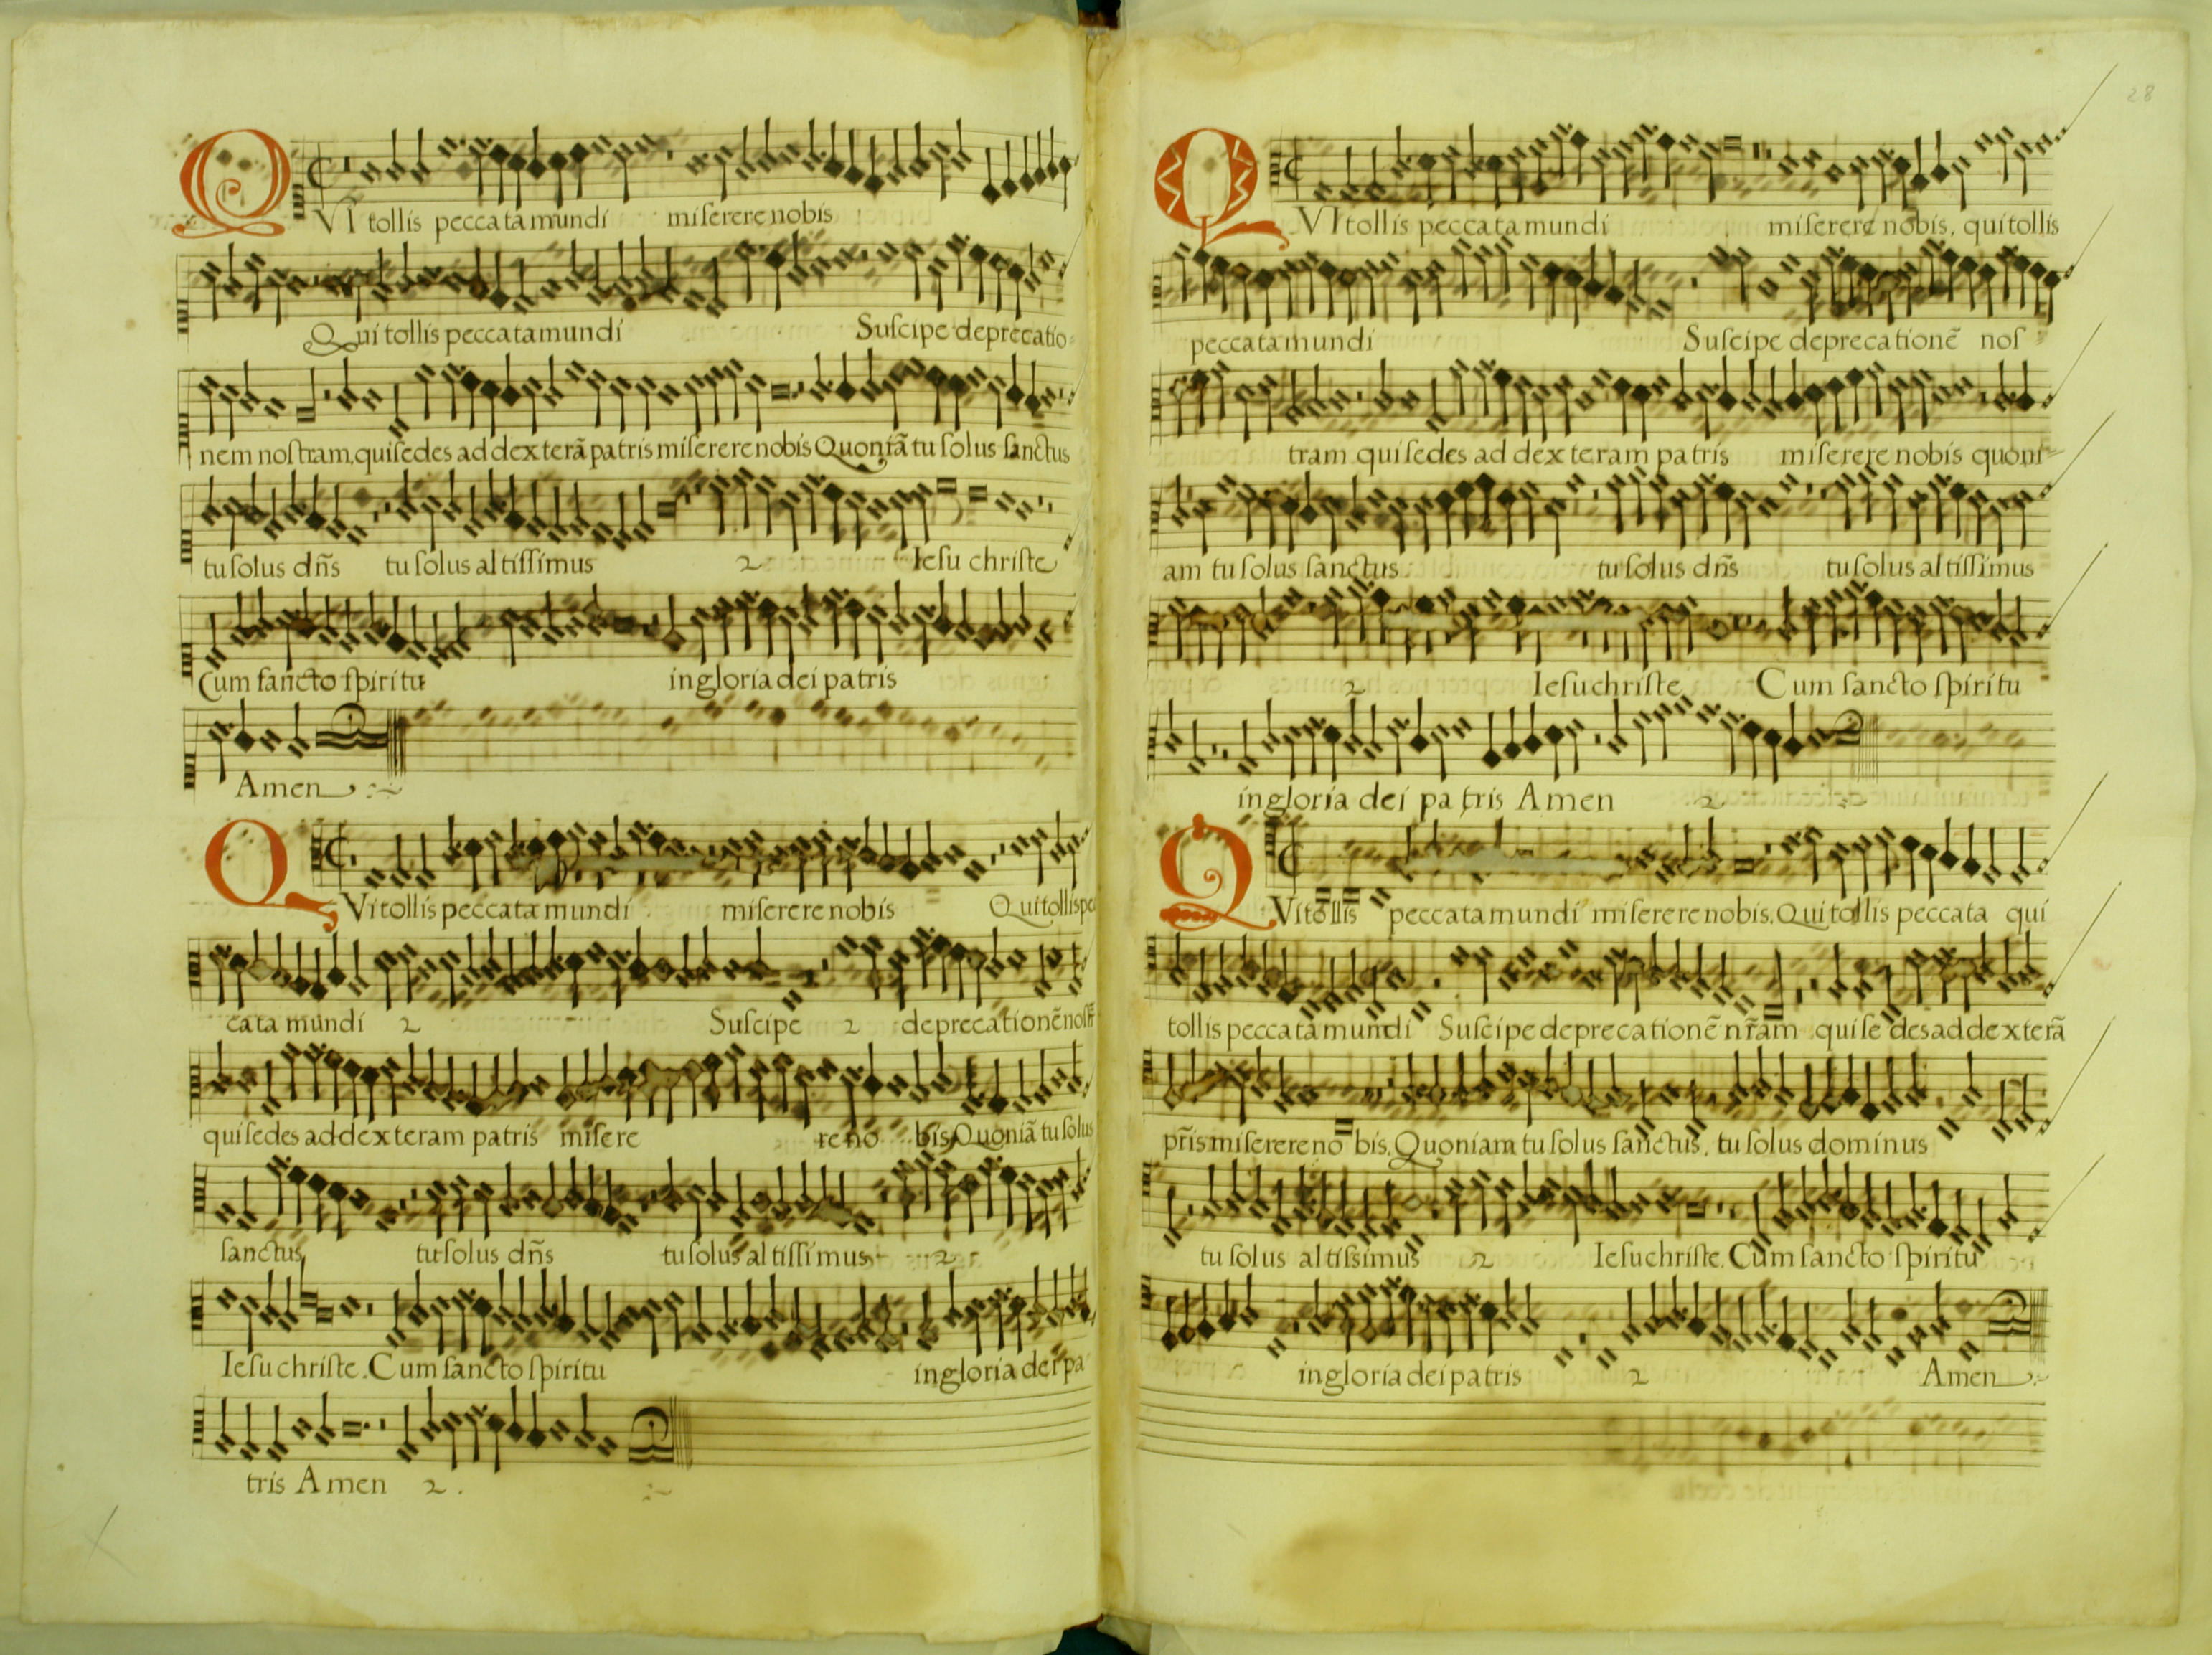 QVI tollis peccata mundi miſerere nobis
Qui tollis peccata mundi Suſcipe deprecatio
nem noſtram, qui ſedes ad dexterā patris miſerere nobis Quoniā tu ſolus ſanctus
tu ſolus dn̄s tu ſolus altiſſimus 2 Ieſu chriſte
Cum ſancto ſpiritu in gloria dei patris
Amen
QVi tollis peccata mundi miſerere nobis Qui tollis pec
cata mundi 2 Suſcipe 2 deprecationē noſtr̄
qui ſedes ad dexteram patris miſere re no bis, Quoniā tu ſolus
ſanctus tu ſolus dn̄s tu ſolus altiſſimus 2
Ieſu chriſte. Cum ſancto ſpiritu in gloria dei pa
tris Amen 2.
28
QVI tollis peccata mundi miſerere nobis, qui tollis
peccata mundi Suſcipe deprecationē noſ
tram qui ſedes ad dexteram patris miſerere nobis quoni
am tu ſolus ſanctus. tu ſolus dn̄s tu ſolus altiſſimus
2 Ieſu chriſte Cum ſancto ſpiritu
in gloria dei patris Amen 2
QVi tollis peccata mundi miſerere nobis. Qui tollis peccata qui
tollis peccata mundi Suſcipe deprecationē nr̄am qui ſedes ad dexterā
pr̄is miſerere no bis. Quoniam tu ſolus ſanctus, tu ſolus dominus
tu ſolus altiſsimus 2 Ieſu chriſte. Cum ſancto ſpiritu
in gloria dei patris 2 Amen